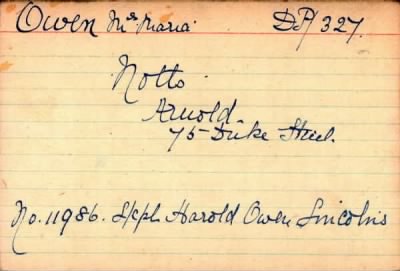 Owen Mrs Maria. DP/327.
Notts.
Arnold
75 Duke Street.
No. 11986. L/cpl. Harold Owen Lincolns